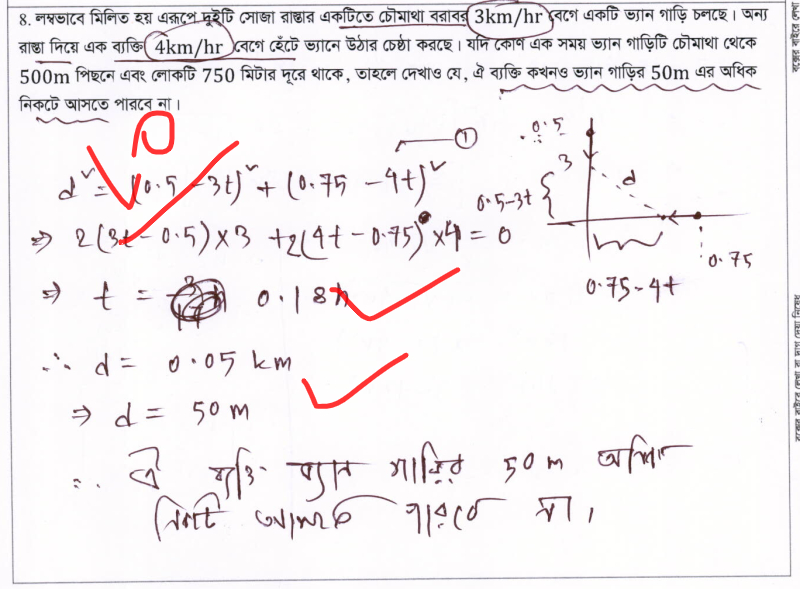 8. লম্বভাবে মিলিত হয় এরূপে দুইটি সোজা রাস্তার একটিতে চৌমাথা বরাবর 3km/hr বেগে একটি ভ্যান গাড়ি চলছে। অন্য
রাস্তা দিয়ে এক ব্যক্তি 4km/hr বেগে হেঁটে ভ্যানে উঠার চেষ্ঠা করছে। যদি কোণ এক সময় ভ্যান গাড়িটি চৌমাথা থেকে
500m পিছনে এবং লোকটি 750 মিটার দূরে থাকে, তাহলে দেখাও যে, ঐ ব্যক্তি কখনও ভ্যান গাড়ির 50m এর অধিক
নিকটে আসতে পারবে না।
①
0.5
d² = (0.5 - 3t)² + (0.75 - 4t)²
3
d
0.5-3t
⇒ 2(3t - 0.5) × 3 + 2(4t - 0.75) × 4 = 0
0.75
0.75-4t
⇒ t = 0.18h
∴ d = 0.05 km
⇒ d = 50 m
∴ ঐ ব্যক্তি ভ্যান গাড়ির 50 m অধিক
নিকটে আসতে পারবে না।